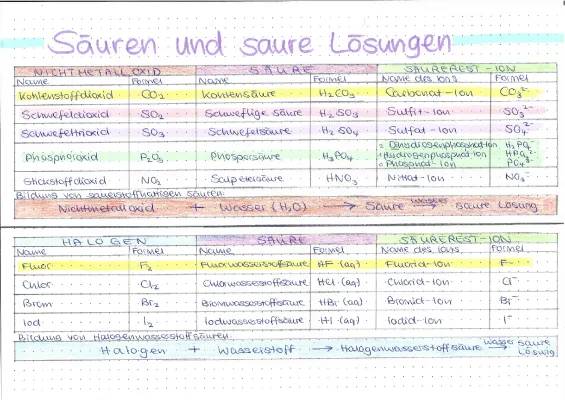 Säuren und saure Lösungen
NICHTMETALLOXID SÄURE SÄUREREST-ION
Name Formel Name Formel Name des Ions Formel
Kohlenstoffdioxid CO₂ Kohlensäure H₂CO₃ Carbonat-Ion CO₃²⁻
Schwefeldioxid SO₂ Schweflige Säure H₂SO₃ Sulfit-Ion SO₃²⁻
Schwefeltrioxid SO₃ Schwefelsäure H₂SO₄ Sulfat-Ion SO₄²⁻
Phosphoroxid P₂O₅ Phosporsäure H₃PO₄ Dihydrogenphosphat-Ion H₂PO₄⁻
Hydrogenphosphat-Ion HPO₄²⁻
Phosphat-Ion PO₄³⁻
Stickstoffdioxid NO₂ Salpetersäure HNO₃ Nitrat-Ion NO₃⁻
Bildung von sauerstoffhaltigen Säuren:
Nichtmetalloxid + Wasser (H₂O) → Säure Wasser→ saure Lösung
HALOGEN SÄURE SÄUREREST-ION
Name Formel Name Formel Name des Ions Formel
Fluor F₂ Fluorwasserstoffsäure HF (aq) Fluorid-Ion F⁻
Chlor Cl₂ Chlorwasserstoffsäure HCl (aq) Chlorid-Ion Cl⁻
Brom Br₂ Bromwasserstoffsäure HBr (aq) Bromid-Ion Br⁻
Iod I₂ Iodwasserstoffsäure HI (aq) Iodid-Ion I⁻
Bildung von Halogenwasserstoffsäuren:
Halogen + Wasserstoff → Halogenwasserstoffsäure Wasser→ saure Lösung